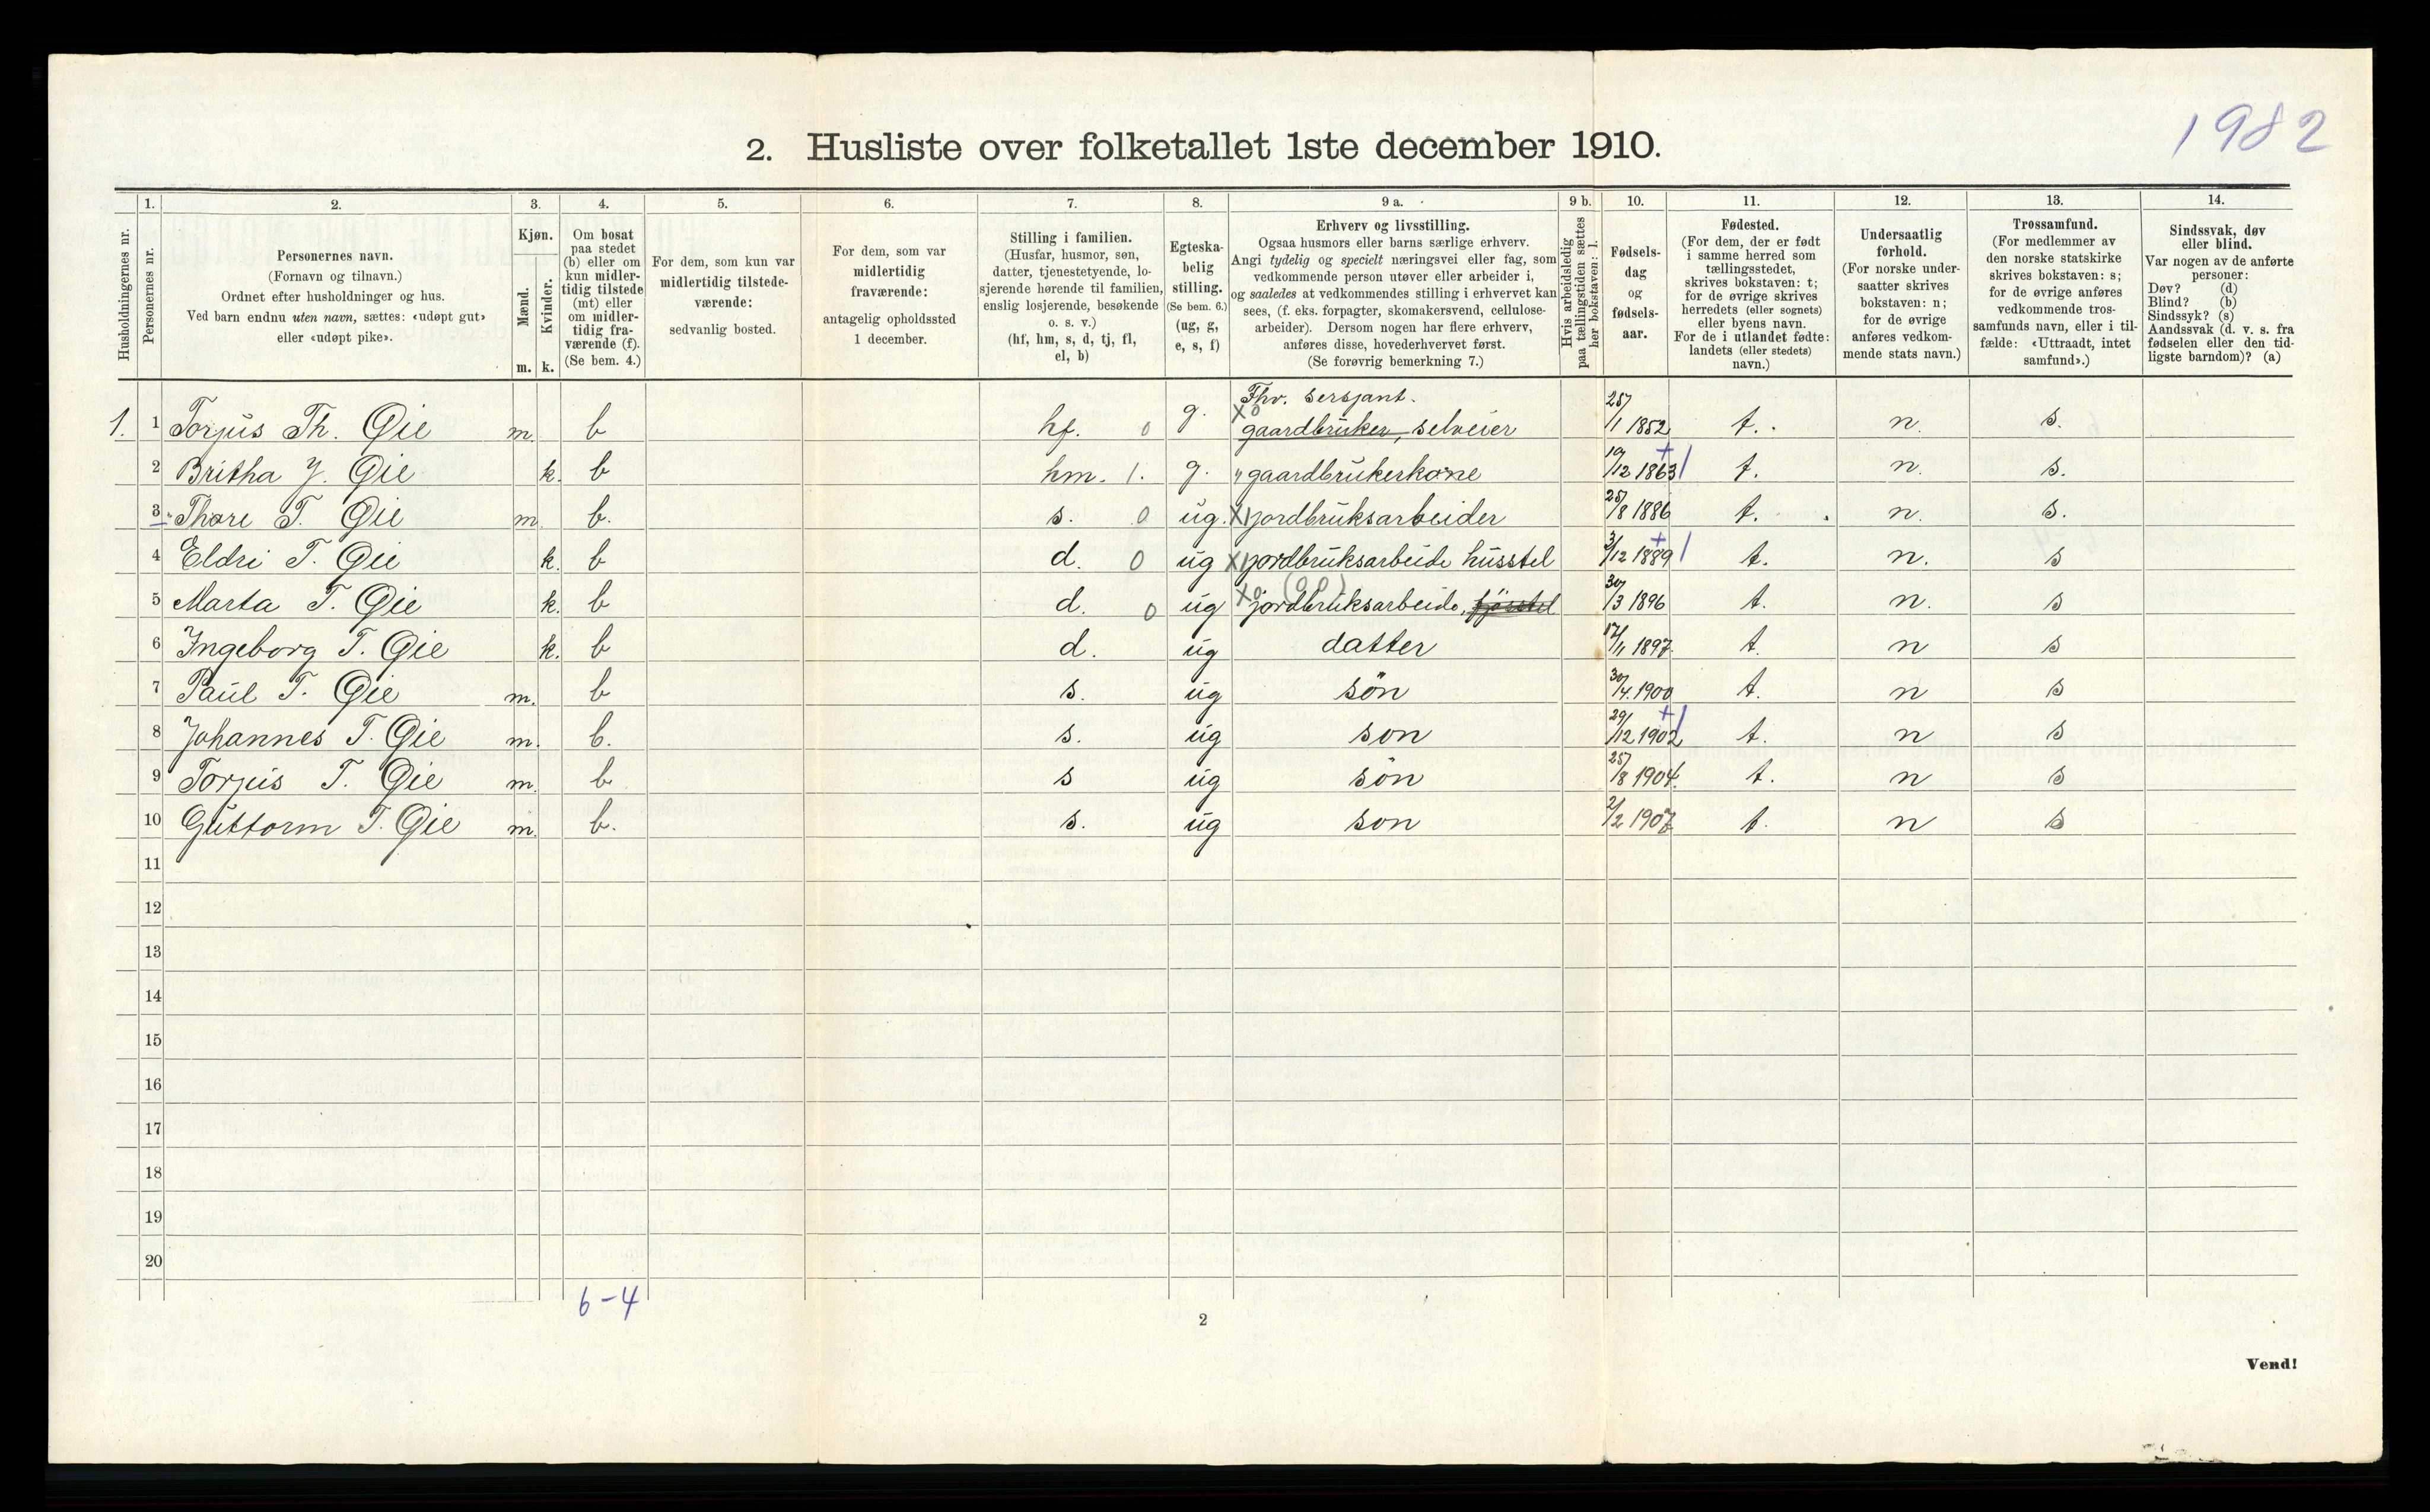 1982
2. Husliste over folketallet 1ste december 1910.
Husholdningernes nr.
1.
Personernes nr.
2.
Personernes navn.
(Fornavn og tilnavn.)
Ordnet efter husholdninger og hus.
Ved barn endnu uten navn, sættes: «udøpt gut»
eller «udøpt pike».
3.
Kjøn.
Mænd.
Kvinder.
m. k.
4.
Om bosat
paa stedet
(b) eller om
kun midler-
tidig tilstede
(mt) eller
om midler-
tidig fra-
værende (f).
(Se bem. 4.)
5.
For dem, som kun var
midlertidig tilstede-
værende:
sedvanlig bosted.
6.
For dem, som var
midlertidig
fraværende:
antagelig opholdssted
1 december.
7.
Stilling i familien.
(Husfar, husmor, søn,
datter, tjenestetyende, lo-
sjerende hørende til familien,
enslig losjerende, besøkende
o. s. v.)
(hf, hm, s, d, tj, fl,
el, b)
8.
Egteska-
belig
stilling.
(Se bem. 6.)
(ug, g,
e, s, f)
9 a.
Erhverv og livsstilling.
Ogsaa husmors eller barns særlige erhverv.
Angi tydelig og specielt næringsvei eller fag, som
vedkommende person utøver eller arbeider i,
og saaledes at vedkommendes stilling i erhvervet kan
sees, (f. eks. forpagter, skomakersvend, cellulose-
arbeider). Dersom nogen har flere erhverv,
anføres disse, hovederhvervet først.
(Se forøvrig bemerkning 7.)
9 b.
Hvis arbeidsledig
paa tællingstiden sættes
her bokstaven: l.
10.
Fødsels-
dag
og
fødsels-
aar.
11.
Fødested.
(For dem, der er født
i samme herred som
tællingsstedet,
skrives bokstaven: t;
for de øvrige skrives
herredets (eller sognets)
eller byens navn.
For de i utlandet fødte:
landets (eller stedets)
navn.)
12.
Undersaatlig
forhold.
(For norske under-
saatter skrives
bokstaven: n;
for de øvrige
anføres vedkom-
mende stats navn.)
13.
Trossamfund.
(For medlemmer av
den norske statskirke
skrives bokstaven: s;
for de øvrige anføres
vedkommende tros-
samfunds navn, eller i til-
fælde: «Uttraadt, intet
samfund».)
14.
Sindssvak, døv
eller blind.
Var nogen av de anførte
personer:
Døv? (d)
Blind? (b)
Sindssyk? (s)
Aandssvak (d. v. s. fra
fødselen eller den tid-
ligste barndom)? (a)
Fhv. sersjant.
1. 1 Torjus Th. Øie m. b hf. 0 g. X0 gaardbruker, selveier 25/1 1852 t. n. s.
2 Britha J. Øie k. b hm. 1. g. " gaardbrukerkone 19/12 1863 t. n. s.
3 Thore T. Øie m b. s. 0 ug. X1 jordbruksarbeider 25/8 1886 t. n. s.
4 Eldri T. Øie k. b d. 0 ug X1 jordbruksarbeide husstel 3/12 1889 t. n. s
5 Marta T. Øie k. b d. 0 ug X0 jordbruksarbeide, fjøsstel 30/3 1896 t. n. s
6 Ingeborg T. Øie k. b d. ug datter 17/11 1897 t. n s
7 Paul T. Øie m. b s. ug søn 30/4 1900 t. n s
8 Johannes T. Øie m. b. s. ug son 29/12 1902 t. n s
9 Torjus T. Øie m. b s ug søn 25/8 1904. t. n s
10 Guttorm T. Øie m. b. s. ug son 2/2 1907 t. n s
11
12
13
14
15
16
17
18
19
20
6-4
2
Vend!